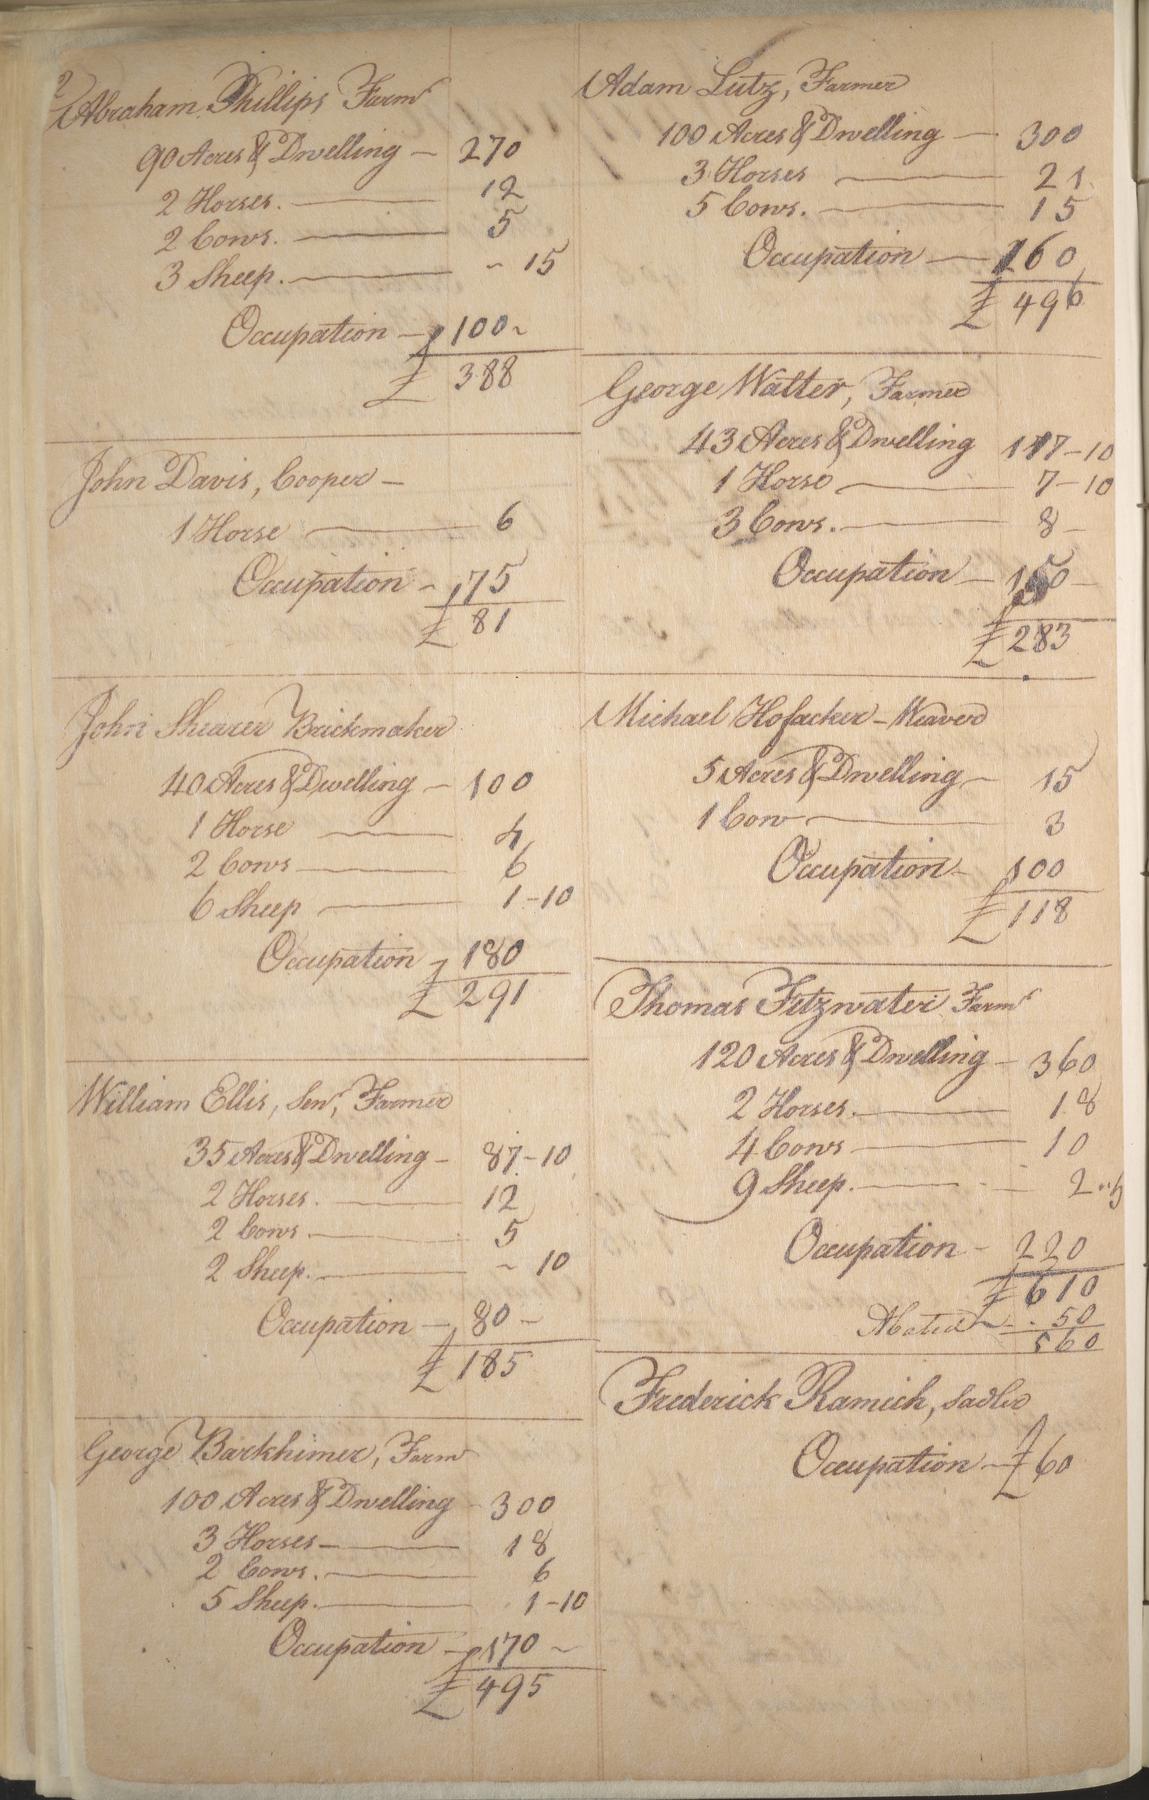 2
Abraham Phillips Farmr
90 Acres & Dwelling — 270
2 Horses. — 12
2 Cows. — 5
3 Sheep. — ~ 15
Occupation — 100 ~
£ 388
John Davis, Cooper —
1 Horse — 6
Occupation - 75
£ 81
John Shearer Brickmaker
40 Acres & Dwelling — 100
1 Horse — 4
2 Cows — 6
6 Sheep — 1-10
Occupation - 180
£ 291
William Ellis, Senr, Farmer
35 Acres & Dwelling - 87-10
2 Horses. — 12
2 Cows. — 5
2 Sheep. — ~ 10
Occupation — 80 ~
£ 185
George Barkhimer, Farmr
100 Acres & Dwelling - 300
3 Horses — 18
2 Cows. — 6
5 Sheep. — 1-10
Occupation — 170 ~
£ 495
Adam Lutz, Farmer
100 Acres & Dwelling — 300
3 Horses — 21
5 Cows. — 15
Occupation — 160
£ 496
George Walter, Farmer
43 Acres & Dwelling 117-10
1 Horse — 7-10
3 Cows. — 8 -
Occupation — 150 -
£ 283
Michael Hofacker - Weaver
5 Acres & Dwelling - 15
1 Cow — 3
Occupation - 100
£ 118
Thomas Fitzwater Farmr
120 Acres & Dwelling - 360
2 Horses. — 18
4 Cows — 10
9 Sheep. — 2..5
Occupation - 220
£ 610
Abated — 50
560
Frederick Ramich, Sadler
Occupation — £ 60